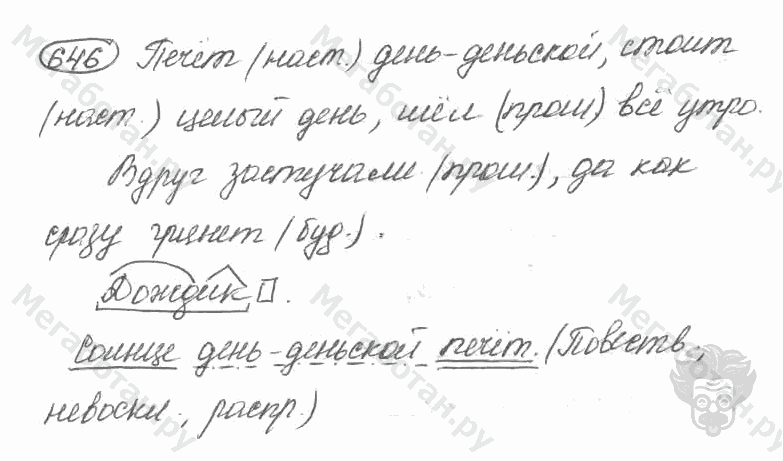 646 Печёт (наст.) день-деньской, стоит
(наст.) целый день, шёл (прош) всё утро.
Вдруг застучали (прош.), да как
сразу грянет (буд.).
Дождик .
Солнце день-деньской печёт. (Повеств.,
невоскл., распр.)
Мегаботан.ру